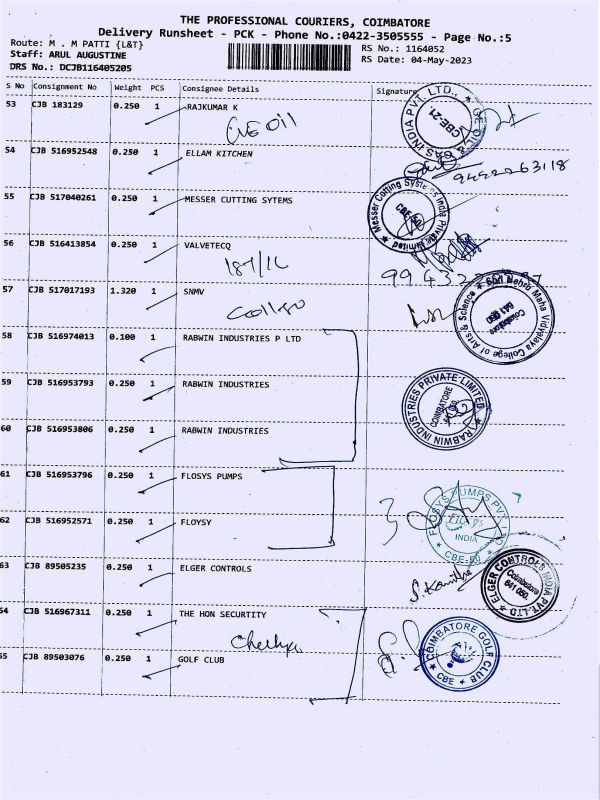 THE PROFESSIONAL COURIERS, COIMBATORE
Delivery Runsheet - PCK - Phone No.:0422-3505555 - Page No.:5
Route: M . M PATTI {L&T}
Staff: ARUL AUGUSTINE
DRS No.: DCJB116405205
RS No.: 1164052
RS Date: 04-May-2023
S No Consignment No Weight PCS Consignee Details Signature
53 CJB 183129 0.250 1 RAJKUMAR K
GE Oil
GE OIL & GAS INDIA PVT. LTD., CBE-21
54 CJB 516952548 0.250 1 ELLAM KITCHEN
55 CJB 517040261 0.250 1 MESSER CUTTING SYTEMS
Messer Cutting Systems India Private Limited
56 CJB 516413854 0.250 1 VALVETECQ
57 CJB 517017193 1.320 1 SNMV
College
Shri Nehru Maha Vidyalaya College of Arts & Science Coimbatore 641 050
58 CJB 516974013 0.100 1 RABWIN INDUSTRIES P LTD
59 CJB 516953793 0.250 1 RABWIN INDUSTRIES
RABWIN INDUSTRIES PRIVATE LIMITED COIMBATORE
60 CJB 516953806 0.250 1 RABWIN INDUSTRIES
61 CJB 516953796 0.250 1 FLOSYS PUMPS
62 CJB 516952571 0.250 1 FLOYSY
FLOSYS PUMPS PVT. LTD. INDIA CBE-50
63 CJB 89505235 0.250 1 ELGER CONTROLS
ELGER CONTROLS INDIA PVT. LTD. Coimbatore 641 050.
64 CJB 516967311 0.250 1 THE HON SECURTITY
65 CJB 89503076 0.250 1 GOLF CLUB
COIMBATORE GOLF CLUB CBE